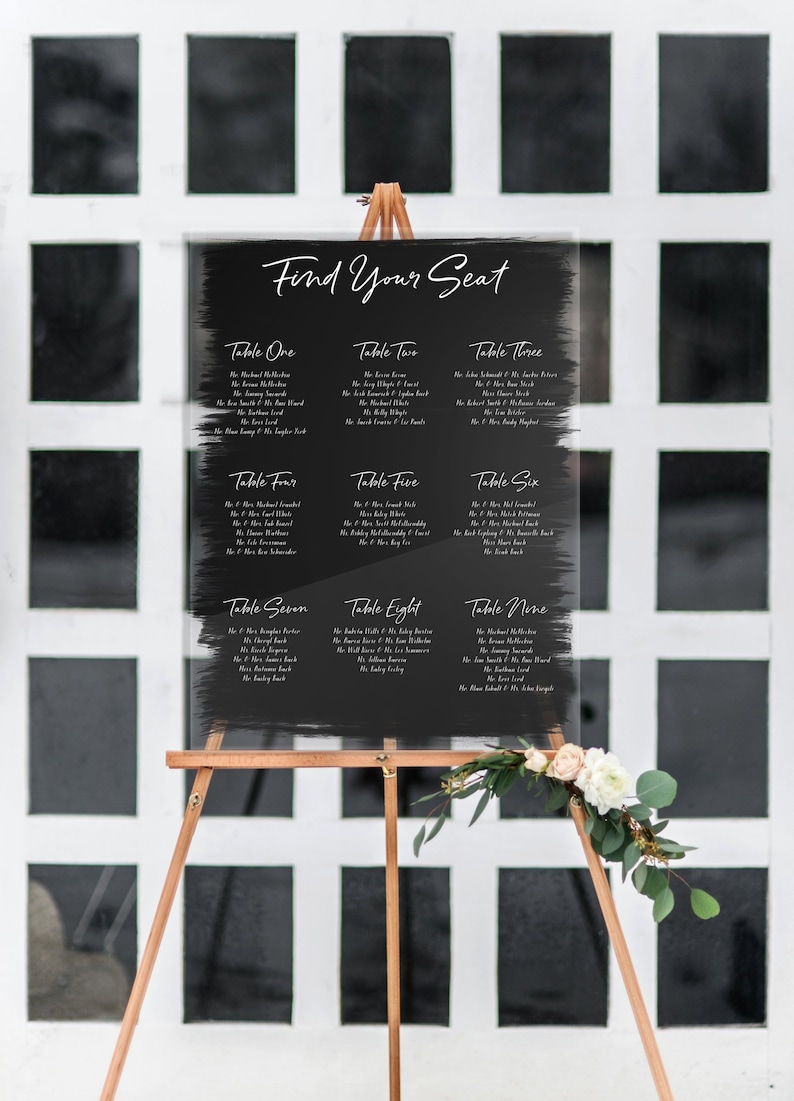 Find Your Seat
Table One
Mr. Michael McMeckin
Mr. Brian McMeckin
Mr. Jimmy Sacardi
Mr. Ken Smith & Ms. Ann Ward
Mr. Nathan Lord
Mr. Kris Lord
Mr. Alan Kamp & Ms. Taylor York
Table Two
Mr. Kevin
Mr. Joey Whyte & Guest
Mr. Josh Heinrich & Lydia Bach
Mr. Michael White
Ms. Holly Whyte
Mr. Jacob Cruise & Liz Pants
Table Three
Mr. John Schmidt & Ms. Jackie Peters
Mr. & Mrs. Dan Stech
Miss Claire Stech
Mr. Robert Smith & Ms. Jordan
Mr. Tom Ritzler
Mr. & Mrs. Andy
Table Four
Mr. & Mrs. Michael Frankel
Mr. & Mrs. Carl White
Mr. & Mrs. Fab
Ms. Elaine Watkins
Mr. Cole Cressman
Mr. & Mrs. Ken Schneider
Table Five
Mr. & Mrs. Frank
Miss Riley White
Mr. & Mrs. Scott McGillicuddy
Ms. Ashley McGillicuddy & Guest
Mr. & Mrs. Roy Cox
Table Six
Mr. & Mrs. Mel Frankel
Mr. & Mrs. Mitch Pittman
Mr. & Mrs. Michael Bach
Mr. Rick Kipling & Ms. Danielle Bach
Miss Mari Bach
Mr. Noah Bach
Table Seven
Mr. & Mrs. Douglas Porter
Ms. Cheryl Bach
Ms. Nicole
Mr. & Mrs. James Bach
Miss. Autumn Bach
Mr. Bailey Bach
Table Eight
Mr. Dakota Wills & Ms. Riley Dustin
Mr. Aaron Riese & Ms. Kim Wilhelm
Mr. Will Riese & Ms. Les Simmers
Ms. Jillian
Ms. Kaley Cooley
Table Nine
Mr. Michael McMeckin
Mr. Brian McMeckin
Mr. Jimmy Sacardi
Mr. Tim Smith & Ms. Ann Ward
Mr. Nathan Lord
Mr. Kris Lord
Mr. Alan & Ms. John